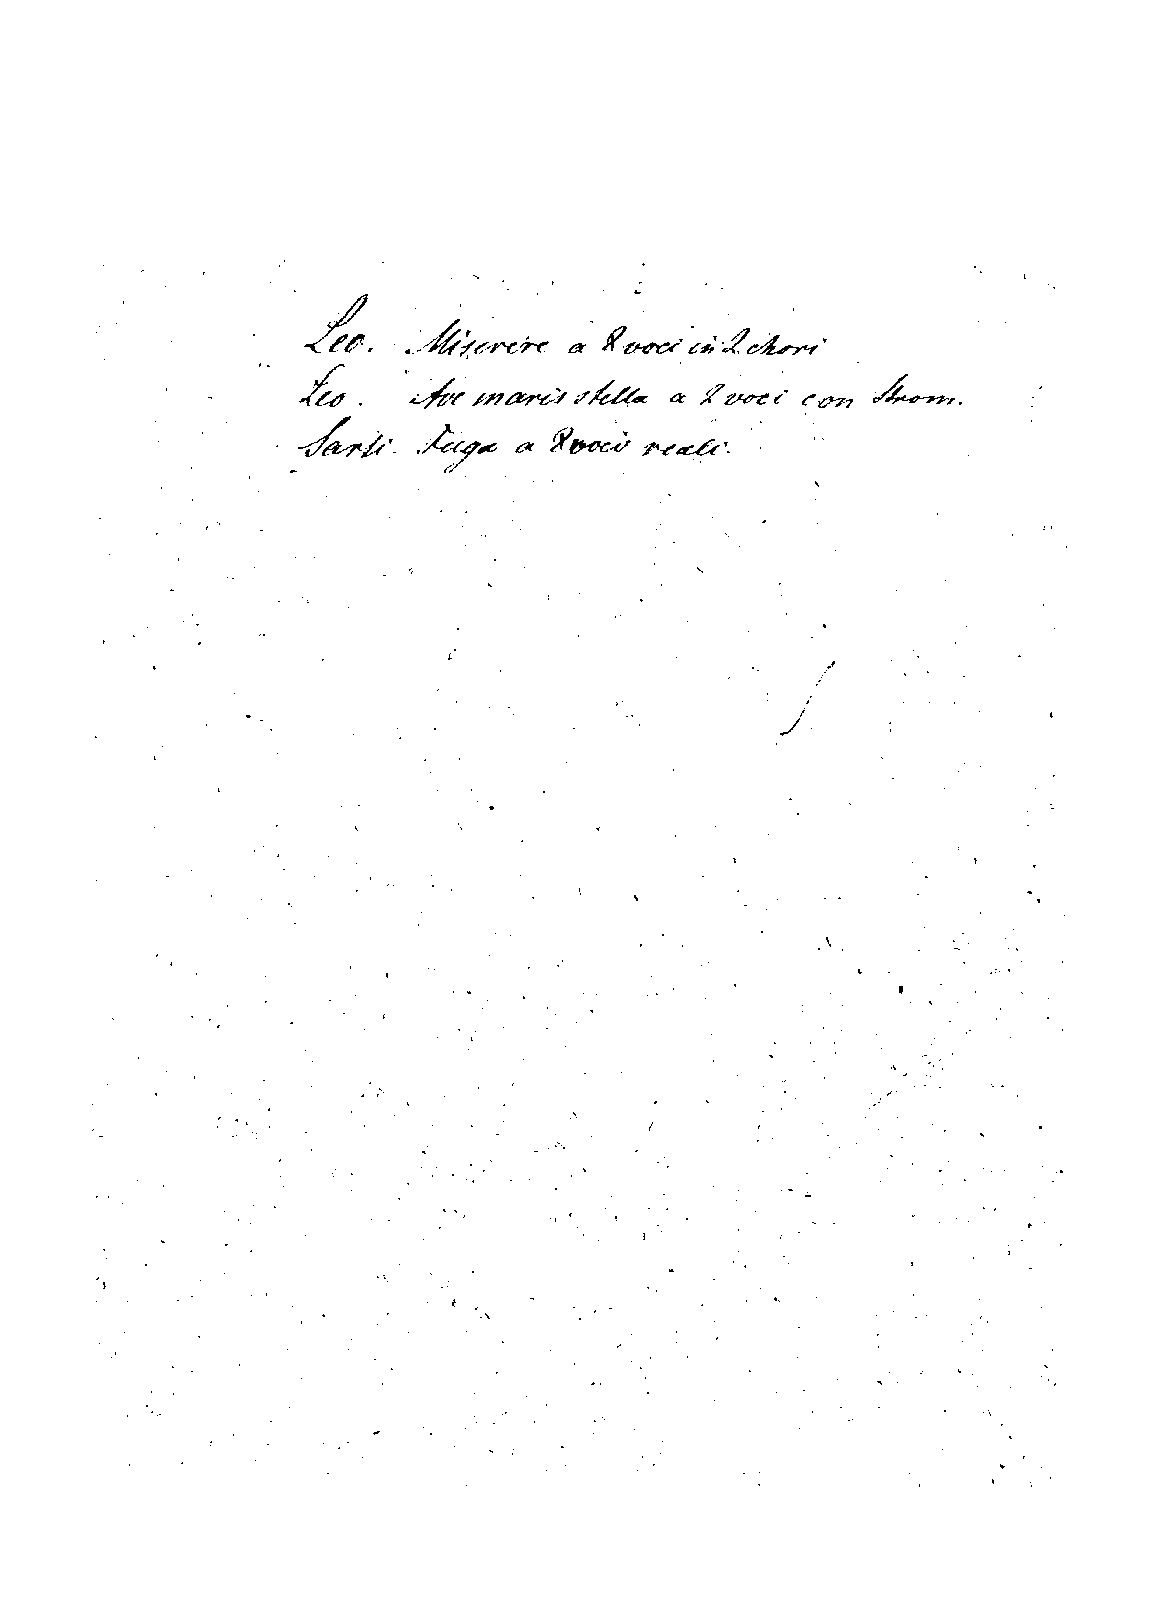 Leo. Miserere a 8 voci in 2 chori
Leo. Ave maris stella a 2 voci con Strom.
Sarti. Fuga a 8 voci reali.